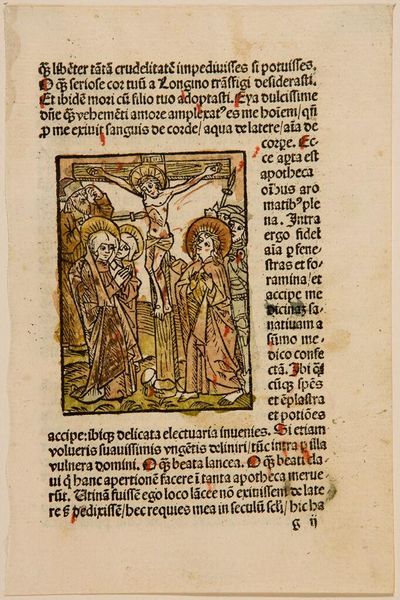 q̃ʒ libẽter tãtã crudelitatẽ impediuisses si potuisses.
O q̃ʒ seriose cor tuũ a Longino trãsfigi desiderasti.
Et ibidẽ mori cũ filio tuo adoptasti. Eya dulcissime
dñe q̃ʒ vehemẽti amore amplexatꝰ es me hoĩem/ qñ
ꝓ me exiuit sanguis de corde/ aqua de latere/ aĩa de
corpe. Ec-
ce apta est
apotheca
oĩbus aro
matibꝰ ple
na. Intra
ergo fidel
aĩa ꝑ fene-
stras et fo-
ramina/ et
accipe me
dicinas sa-
natiuam a
sũmo me-
dico confe
ctã. Ibi q̃
cũqʒ spẽs
et ẽplastra
et potiões
accipe: ibiqʒ delicata electuaria inuenies. Si etiam
volueris suauissimis vngẽtis deliniri/ tũc intra ꝑ illa
vulnera domini. O q̃ʒ beata lancea. O q̃ʒ beati cla-
ui q̃ hanc apertionẽ facere ĩ tanta apotheca merue-
rũt. Utinã fuissẽ ego loco lãcee nõ exiuissem̃ de late
re sʒ dixissẽ/ hec requies mea in seculũ sclĩ/ hic ha
g ij